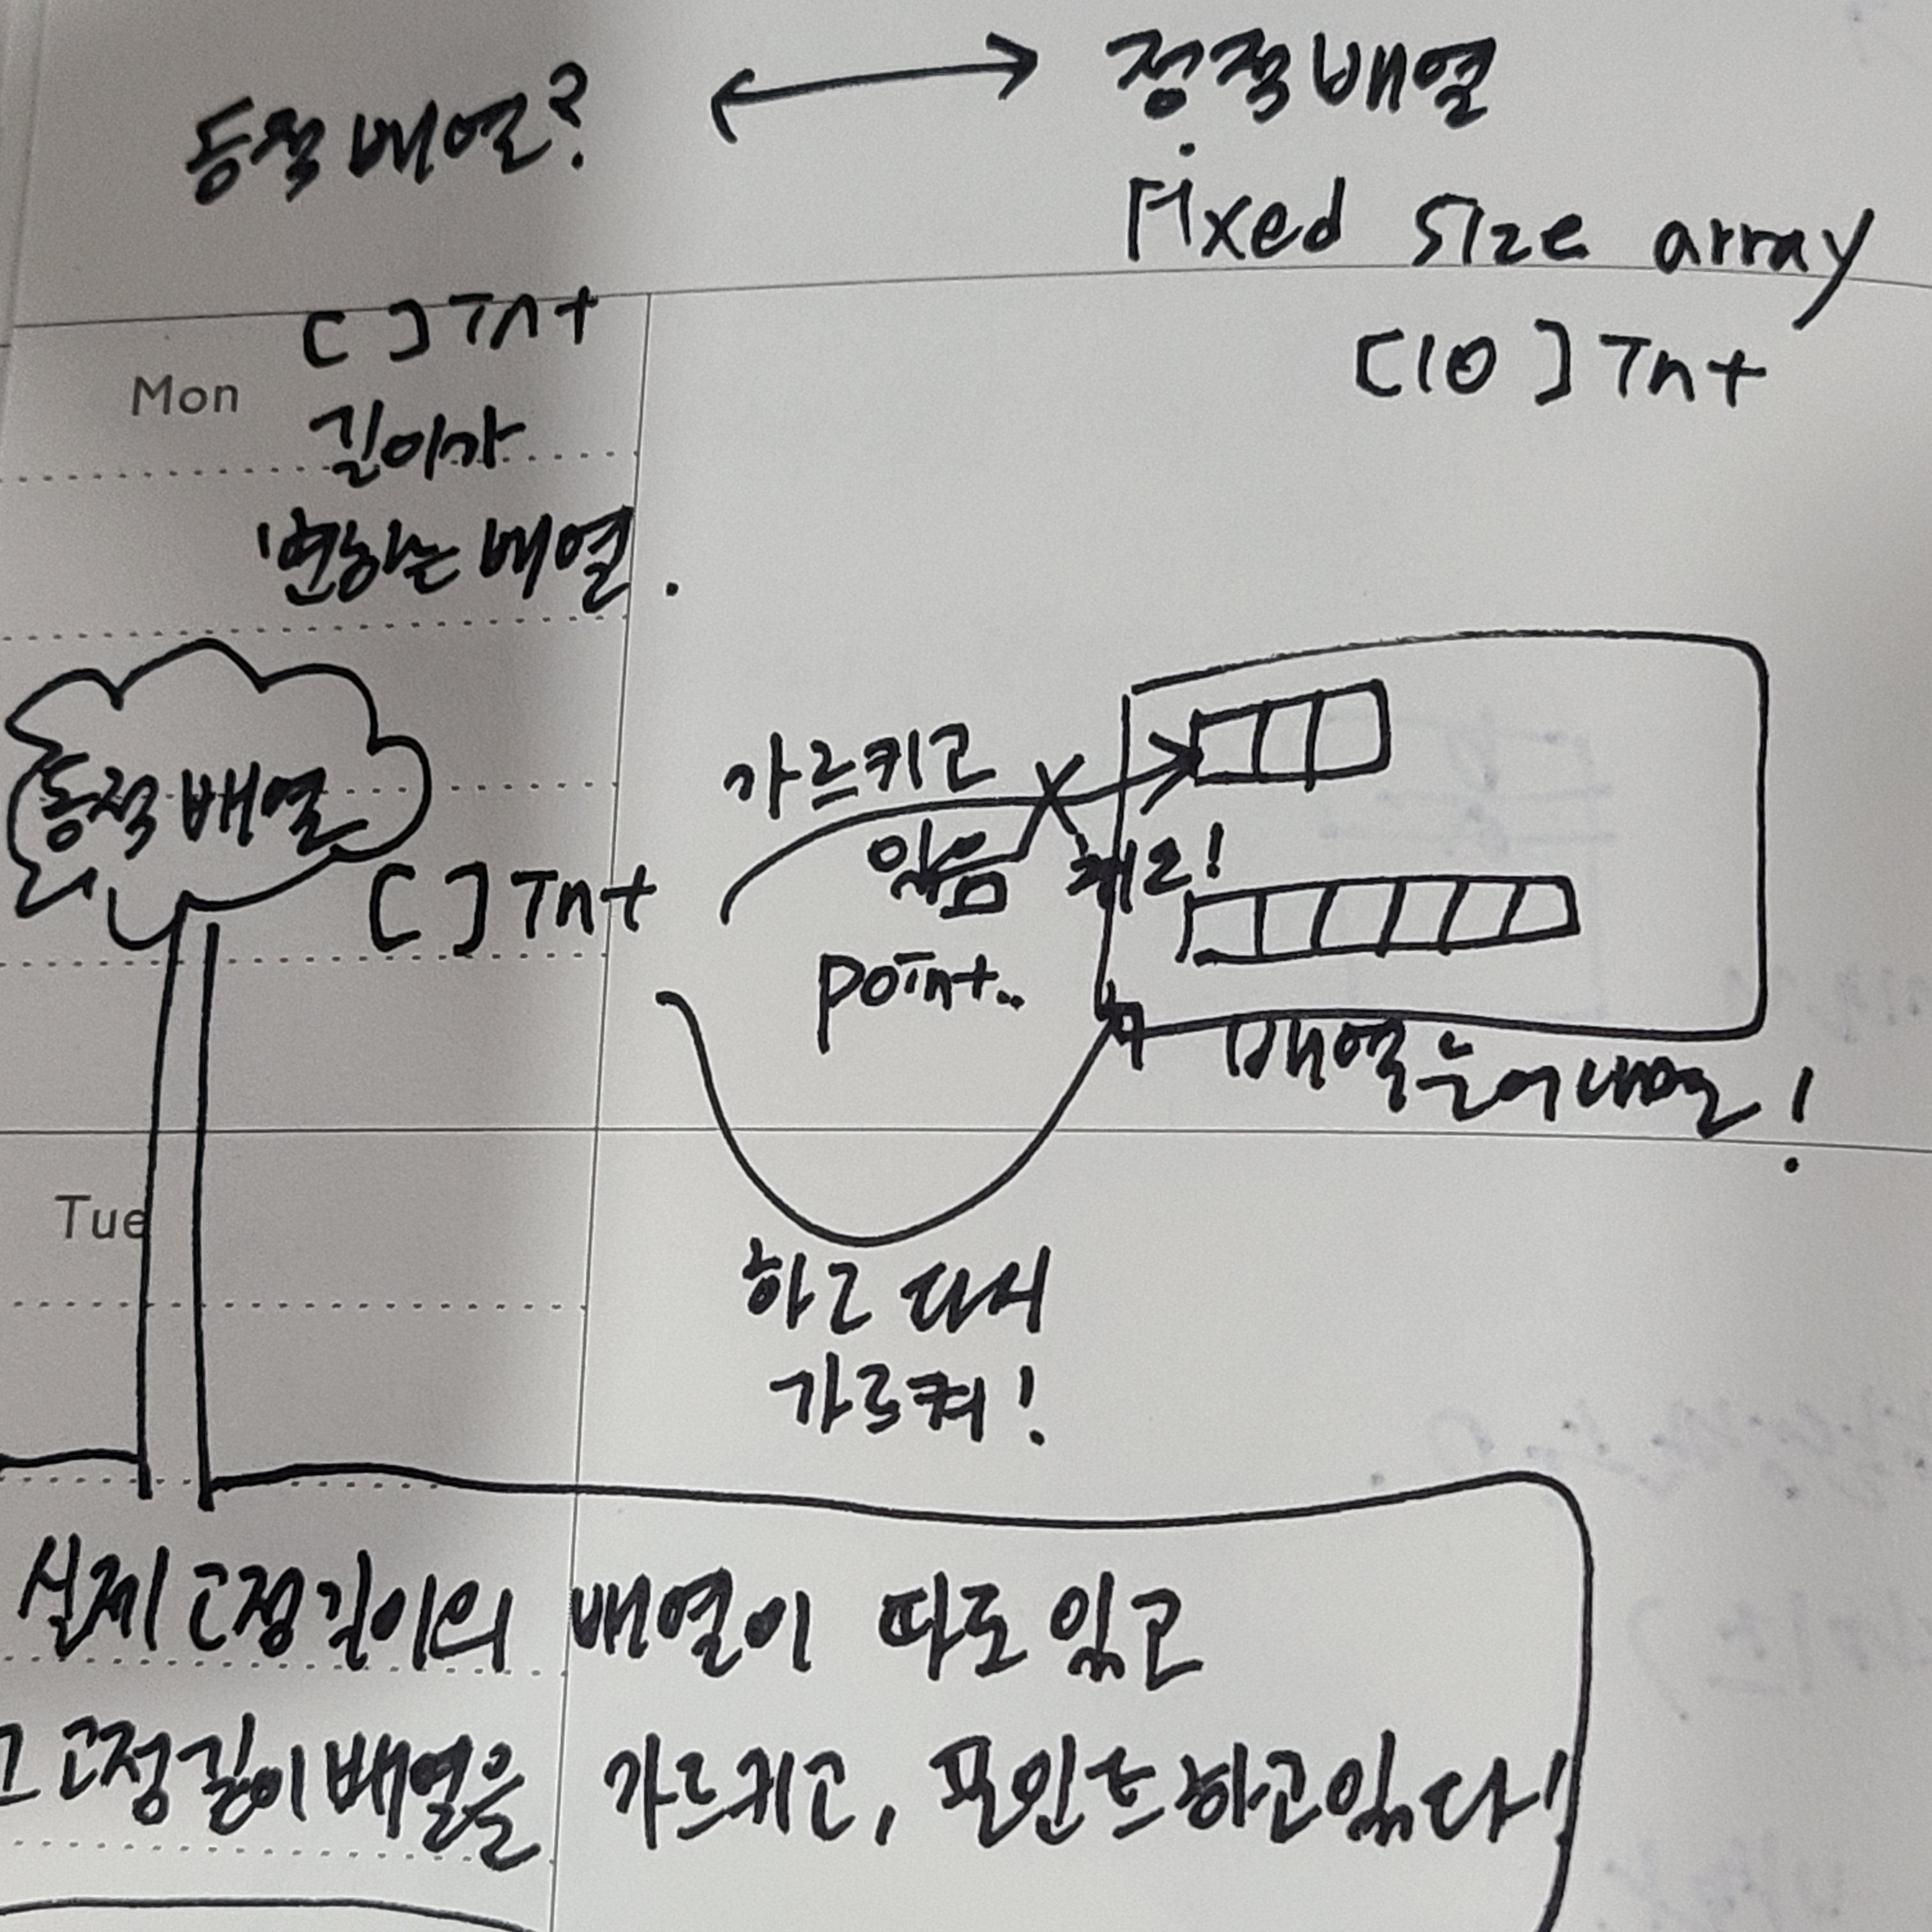 동적 배열?
정적 배열
Fixed size array
[ ] Int
[10] Int
Mon
길이가
변하는 배열.
동적 배열
[ ] Int
가르키고
있음
point..
제로!
배열 늘어나면!
Tue
하고 다시
가르켜!
실제 고정길이의 배열이 따로 있고
그 고정길이 배열을 가르키고, 포인트하고있다!